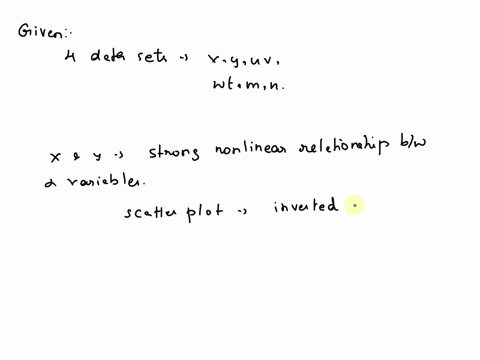 Given:-
4 data sets → x,y,uv,
wt,m,n.
x & y → strong nonlinear relationship b/w
2 variables.
scatter plot → inverted